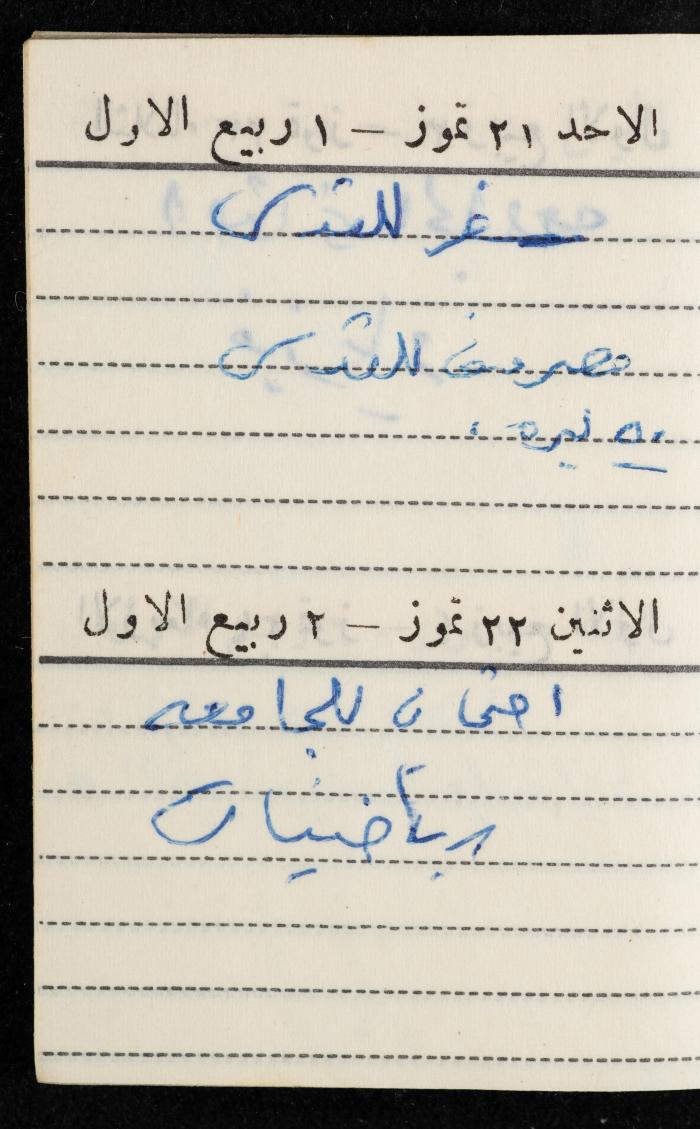 الاحد ٢١ تموز – ١ ربيع الاول
سفر للقدس
مصروف للقدس
٥٠ ليره
الاثنين ٢٢ تموز – ٢ ربيع الاول
امتحان للجامعه
رياضيات